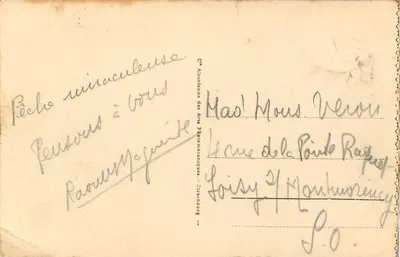 Pêche miraculeuse
Pensons à vous
Raoul Marguerite
Cie Alsacienne des Arts Photomécaniques - Strasbourg
Mad/ Mons. Veron
4 rue de la Pointe Raquet
Soisy s/ Montmorency
S.O.